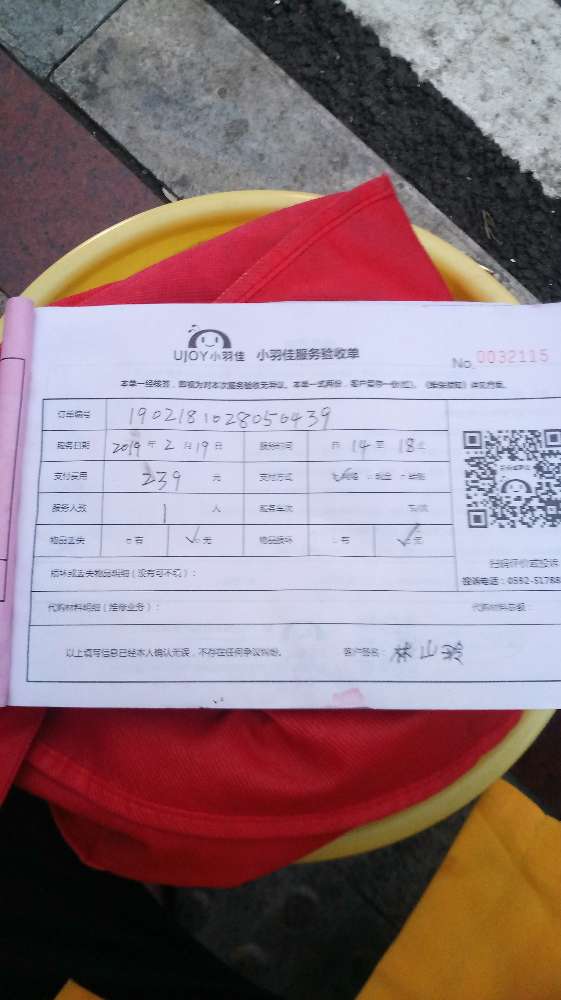 UJOY小羽佳 小羽佳服务验收单
No. 0032115
本单一经核签，即视为对本次服务验收无异议。本单一式两份，客户留存一份(红)。
订单编号 1902181028050439
服务日期 2019 年 2 月 19 日 服务时间 自 14 至 18 止
支付费用 239 元 支付方式 现金
服务人数 1 人 服务车次
物品丢失 有 ✓ 无 物品损坏 有 ✓ 无
损坏或丢失物品明细（没有可不填）：
扫码评价或投诉
投诉电话：0592-51788
代购材料明细（维修业务）： 代购材料总额：
以上填写信息已经本人确认无误，不存在任何争议纠纷。 客户签名： 林山玲